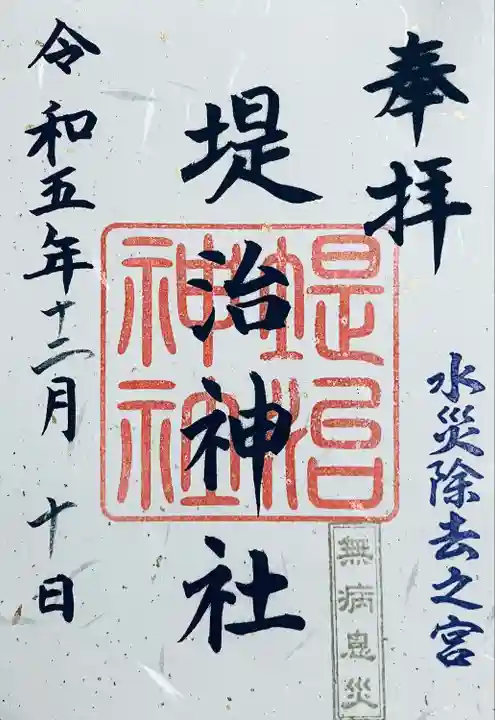 奉拝
水災除去之宮
堤治神社
堤治神社
無病息災
令和五年十二月 十日